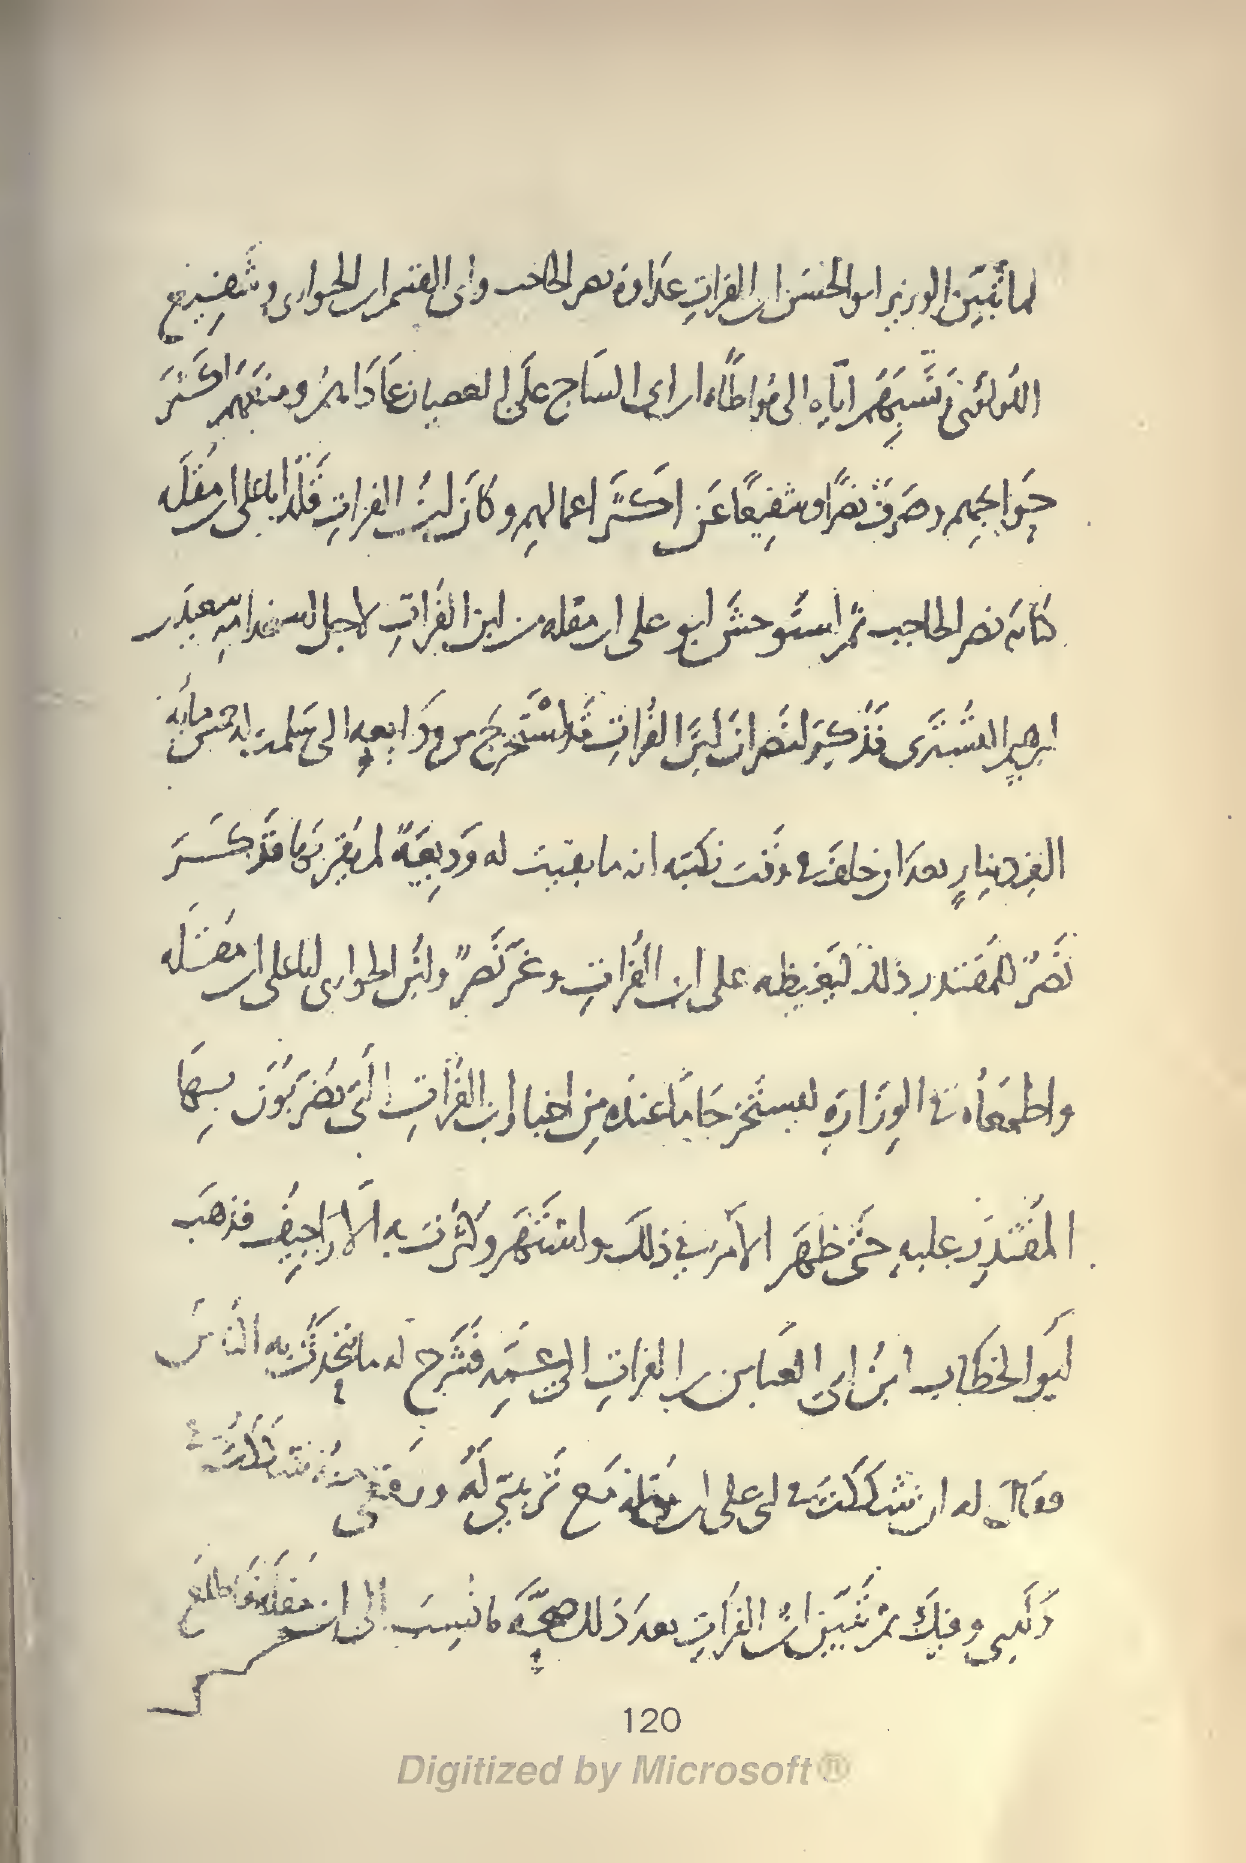 لما تبين الوزير ابو الحسن ابن الفرات عداوة نصر الحاجب وابى القسم ابن الحوارى وشفيع
اللؤلؤى ونسبهم اياه الى مواطاة ابن ابى الساج على العصيان عاداهم ومنعهم اكثر
حوايجهم وصرف نصرا وشفيعا عن اكثر اعمالهم وكان ابن الفرات قلد ابا على ابن مقله
كتابة نصر الحاجب ثم استوحش ابو على ابن مقله من ابن الفرات لاجل استخدامه سعيد بن
ابرهيم التسترى فذكر لنصر ان ابن الفرات قد استخرج من ودايعه الى ما سلمت له خمس مايه
الف دينار بعد ان حلف فى وقت نكبته انه ما بقيت له وديعة لم يقر بها فذكر
نصر للمقتدر ذلك ليغيظه على ابن الفرات وغر نصر وابن الحوارى ابا على ابن مقله
واطمعاه فى الوزارة ليستخرجا ما عنده من اخبار ابن الفرات التى يضربون بها
المقتدر عليه حتى ظهر الامر فى ذلك واشتهر وكثرت به الاراجيف فذهب
ابو الخطاب ابن ابى العباس بن الفرات الى عمه فشرح له ما يتحدث به الناس
فقال له ان تشككت فى ابى على ابن مقله مع تربيتى له ... منه تشككت فى
ولدى وفيك ثم تبين ابن الفرات بعد ذلك صحة ما نسب الى ابن مقله فاطلع
120
Digitized by Microsoft®